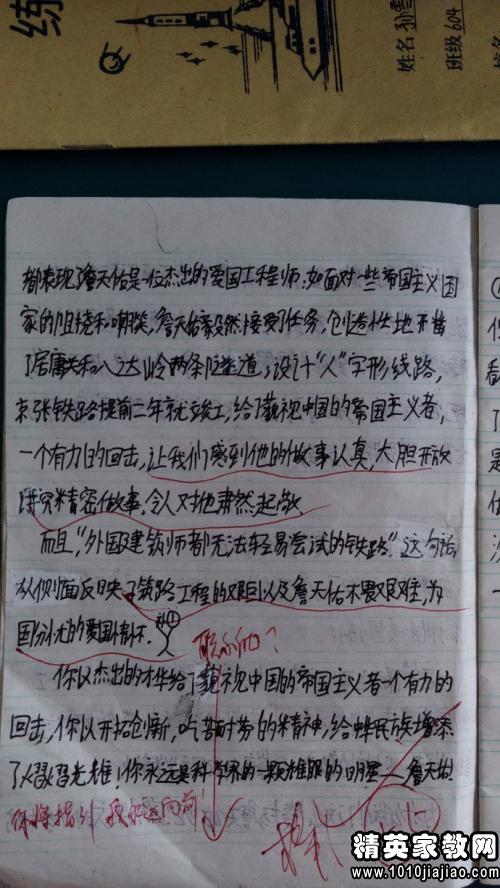 练
姓名 孙雪
班级 604
都表现了詹天佑是一位杰出的爱国工程师。如面对一些帝国主义国
家的阻挠和嘲笑,詹天佑毅然接受了任务,创造性地开凿
了居庸关和八达岭两条隧道;设计“人”字形线路,
京张铁路提前二年就竣工,给了藐视中国的帝国主义者,
一个有力的回击,让我们感到他的做事认真,大胆开放
讲究精密做事,令人对他肃然起敬
而且,“外国建筑师都无法轻易尝试的铁路”这句话
从侧面反映了筑路工程的艰巨以及詹天佑不畏艰难,为
国分忧的爱国情怀.
联系内心?
你以杰出的才华给了藐视中国的帝国主义者一个有力的
回击,你以开拓创新,吃苦耐劳的精神,给中华民族增添
了熠熠光雄,你永远是科学界的一颗耀眼的明星——詹天佑.
你将指引我永远向前!
精英家教网
www.1010jiajiao.com